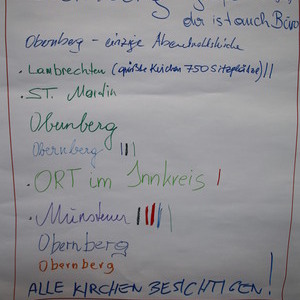 der ist auch Büro
Obernberg - einzige Abendmahlskirche
· Lambrechten (größte Kirchen 750 Sitzplätze) ||
· ST. Martin
Obernberg
Obernberg |||
· ORT im Innkreis |
· Münsteuer ||||||
Obernberg
Obernberg
ALLE KIRCHEN BESICHTIGEN!